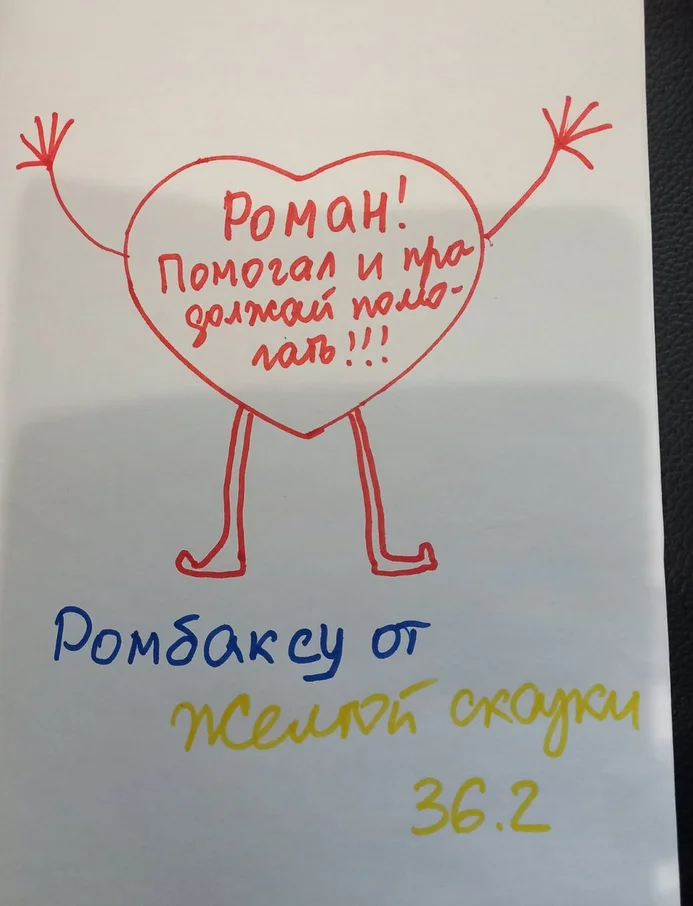 Роман!
Помогал и про
должай помо-
гать!!!
Ромбаксу от
Желтой скажки
36.2